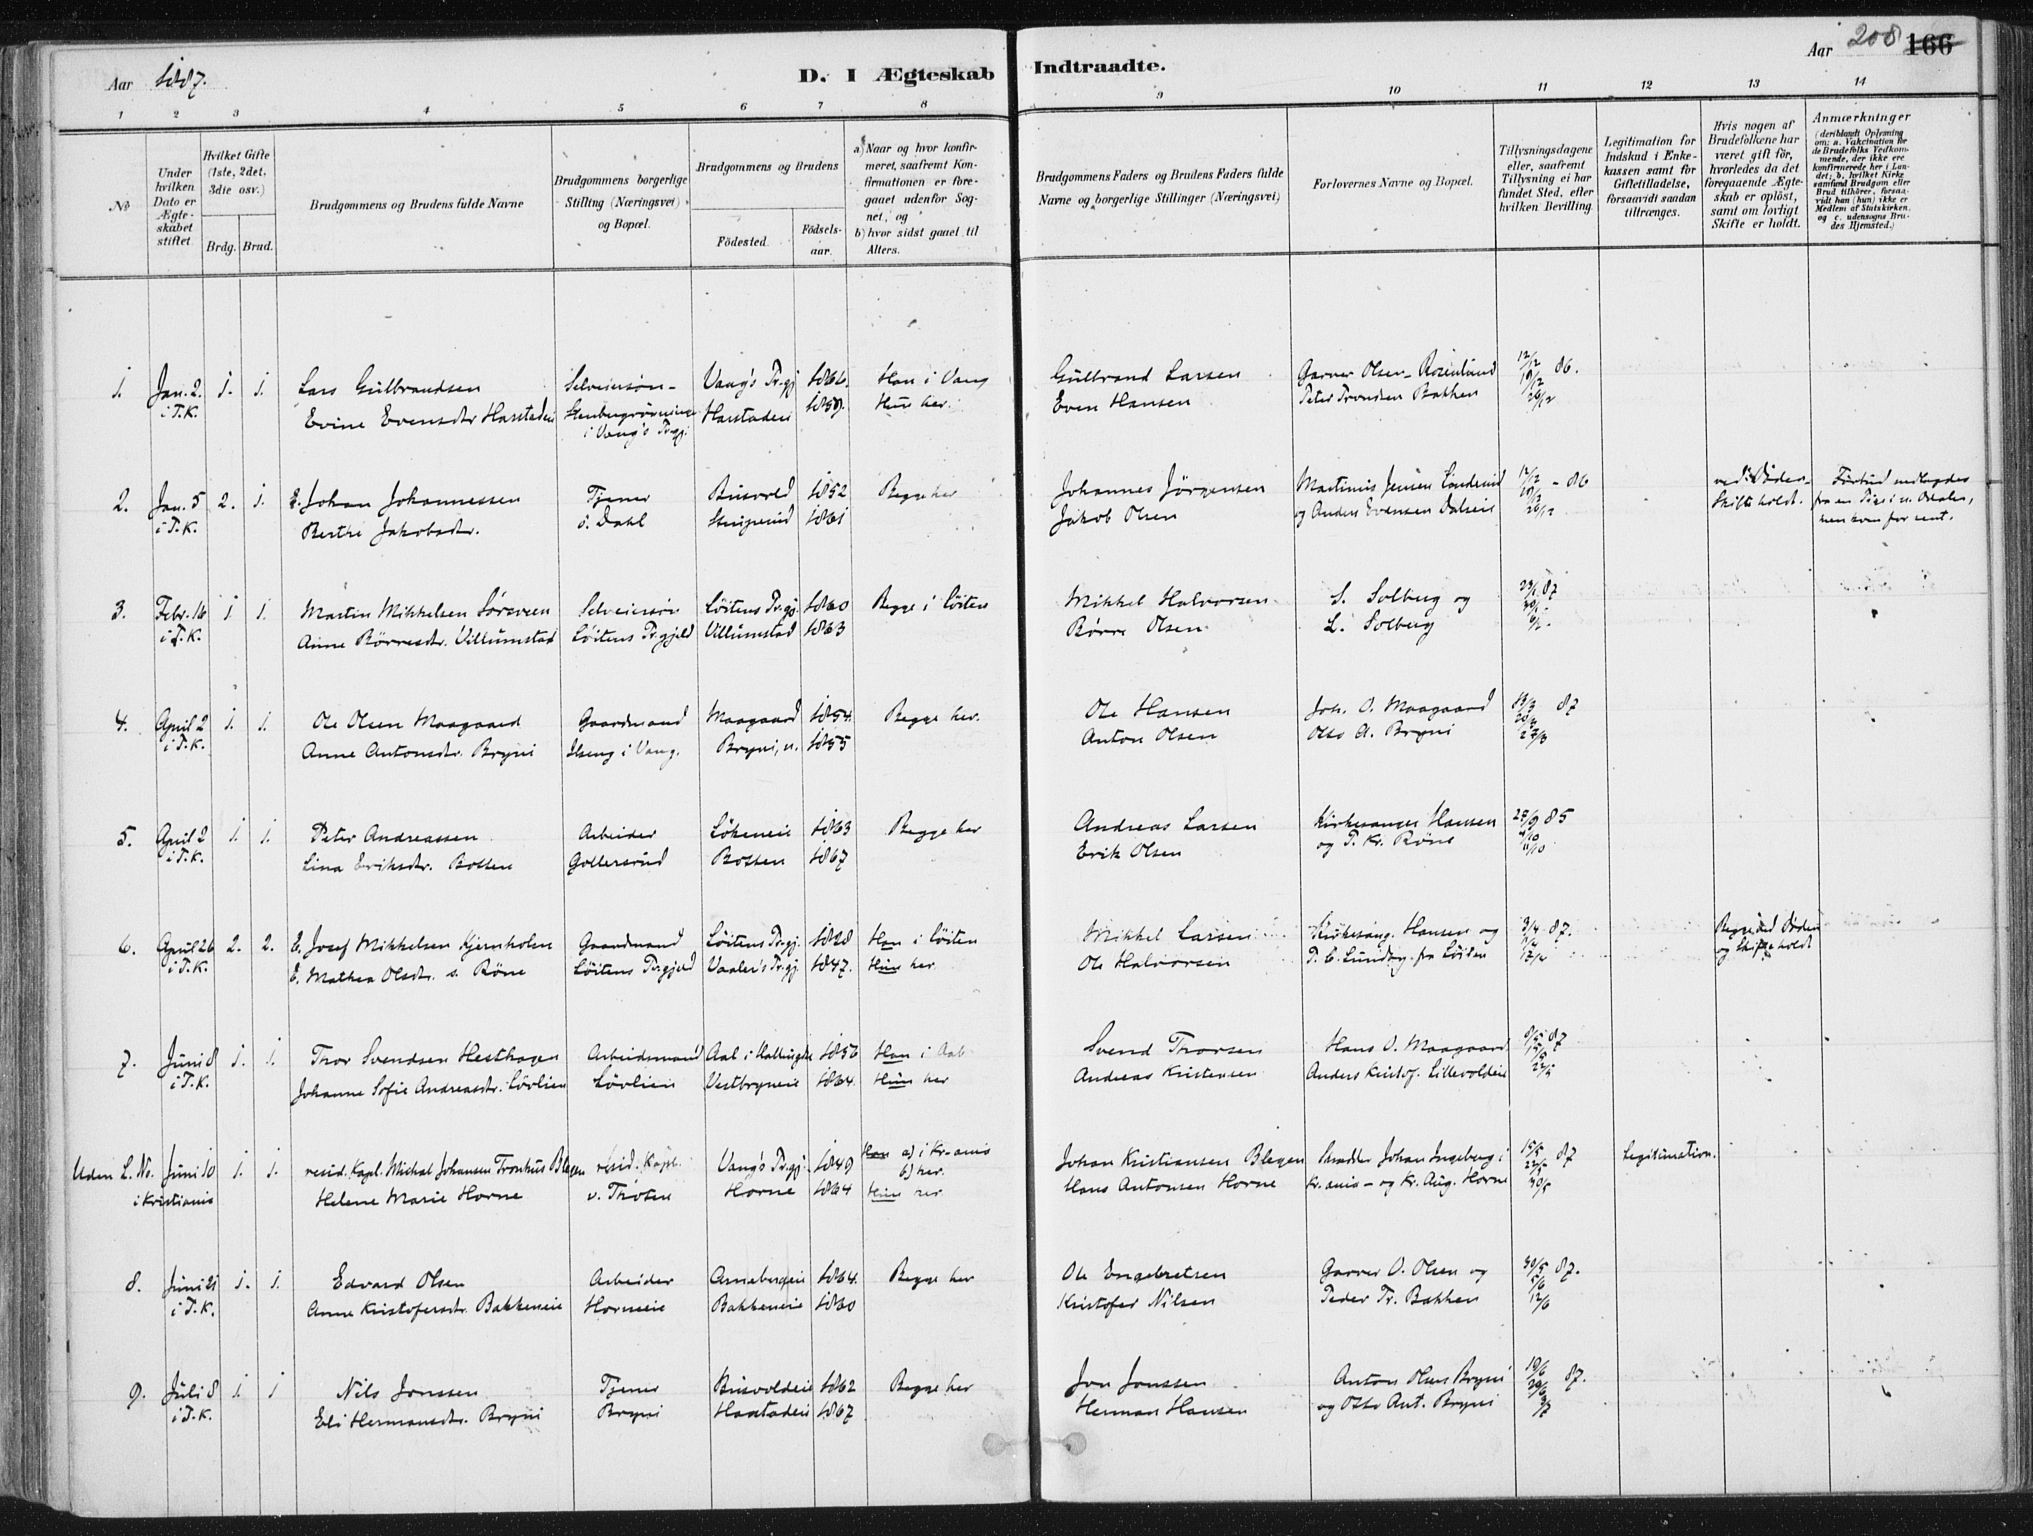 Aar 1887.
D. I Ægteskab Indtraadte.
Aar 208 166
1 2 3 4 5 6 7 8 9 10 11 12 13 14
No
Under hvilken Dato er Ægteskabet stiftet.
Hvilket Gifte (1ste, 2det, 3die osv.)
Brdg. Brud.
Brudgommens og Brudens fulde Navne
Brudgommens borgerlige Stilling (Næringsvei) og Bopæl.
Brudgommens og Brudens
Födested.
Födselsaar.
a) Naar og hvor konfirmeret, saafremt Konfirmationen er foregaaet udenfor Sognet, og
b) hvor sidst gaaet til Alters.
Brudgommens Faders og Brudens Faders fulde Navne og borgerlige Stillinger (Næringsvei)
Forlovernes Navne og Bopæl.
Tillysningsdagene eller, saafremt Tillysning ei har fundet Sted, efter hvilken Bevilling.
Legitimation for Indskud i Enkekassen samt for Giftetilladelse, forsaavidt saadan tiltrænges.
Hvis nogen af Brudefolkene har været gift för, hvorledes da det foregaaende Ægteskab er oplöst, samt om lovligt Skifte er holdt.
Anmærkninger
(deriblandt Oplysning om: a. Vakcination for de Brudefolks Vedkommende, der ikke ere konfirmerede her i Landet; b. hvilket Kirkesamfund Brudgom eller Brud tilhörer, forsaavidt han (hun) ikke er Medlem af Statskirken, og c. udensogns Brudes Hjemsted.)
1. Jan. 2. 1. 1. Lars Gulbrandsen Selveiersön Vang's Prgj 1866. Han i Vang Gulbrand Larsen Garver Olsen Rosenlund 12/12 86.
i T.K. Evine Evensdtr Harstadeie i Vang's Prgj. Harstadeie 1859. Hun her. Even Hansen Peter Tronsen Bakken 19/12 26/12
2. Jan. 5 2. 1. E. Johan Johannessen Tjener Busvold 1852 Begge her Johannes Jörgensen Martinus Jensen 12/12 86 ved Döden
i T.K. Berthe Jakobsdtr. ö. Dahl Stenserud 1861 Jakob Olsen og Anders Evensen Dalseie 26/12 Skifte holdt.
3. Febr. 16 1 1. Martin Mikkelsen Sörsveen Selveiersön Löitens Prgj. 1860 Begge i Löiten Mikkel Halvorsen S. Solberg og 23/1 87
i T.K. Anne Börresdtr. Villumstad Löitens Prgjeld Villumstad 1863 Börre Olsen L. Solberg 30/1 6/2
4. April 2 1. 1. Ole Olsen Maagaard Gaardmand Maagaard 1854. Begge her. Ole Hansen Joh. O. Maagaard 13/3 87
i T.K. Anne Antonsdtr. Bryni Ilseng i Vang. Bryni, n. 1855 Anton Olsen Otto A. Bryni 20/3 27/3
5. April 2 1. 1. Peter Andreassen Arbeider Lökeneie 1863 Begge her Andreas Larsen Kirkesanger Hansen 27/9 85
i T.K. Lina Eriksdtr. Botten Gollersrud Botten 1867 Erik Olsen og P. Kr. Röne 4/10 11/10
6. April 26 2. 2. E. Josef Mikkelsen Kjernholen Gaardmand Löitens Prgj. 1828 Han i Löiten Mikkel Larsen Kirkesang. Hansen og 3/4 87. Begge ved Döden
i T.K. E. Mathea Olsdtr. s. Röne Löitens Prgjeld Vaaler's Prgj. 1847. Hun her Ole Halvorsen P. C. Lundby fra Löiten 17/4 og Skifte holdt
7. Juni 8 1. 1. Thor Svendsen Hesthagen Arbeidsmand Aal i Hallingdal 1856 Han i Aal Svend Thorsen Hans O. Maagaard 8/5 87
i T.K. Johanne Sofie Andreasdtr. Lövlien Lövlien Vestbrynieie 1864. Hun her Andreas Kristensen Anders Kristof. Lillevoldeie 15/5 22/5
Uden L. No. Juni 10 1. 1. resid. Kapl. Michal Johansen Tronhus Blegen resid. Kapl. Vang's Prgj. 1849 Han a) i Kr-ania b) her. Johan Kristiansen Blegen Skrædder Johan Ingeberg i 15/5 87 Legitimation.
i Kristiania Helene Marie Horne v. Thoten Horne 1864 Hun her Hans Antonsen Horne Kr.ania og Kr. Aug. Horne 22/5 30/5
8. Juni 21 1. 1. Edvard Olsen Arbeider Arnebergeie 1864. Begge her Ole Engebretsen Garver O. Olsen og 30/5 87.
i T.K. Anne Kristofersdtr. Bakkeneie Horneeie Bakkeneie 1860 Kristofer Nilsen Peder Tr. Bakken 5/6 12/6
9. Juli 8 1. 1 Nils Jonssen Tjener Busvoldeie 1862 Begge her Jon Jonssen Anton Olsen Bryni 19/6 87.
i T.K. Eli Hermansdtr. Bryni Bryni Harstadeie 1867 Herman Hansen og Otto Ant. Bryni 26/6 3/7